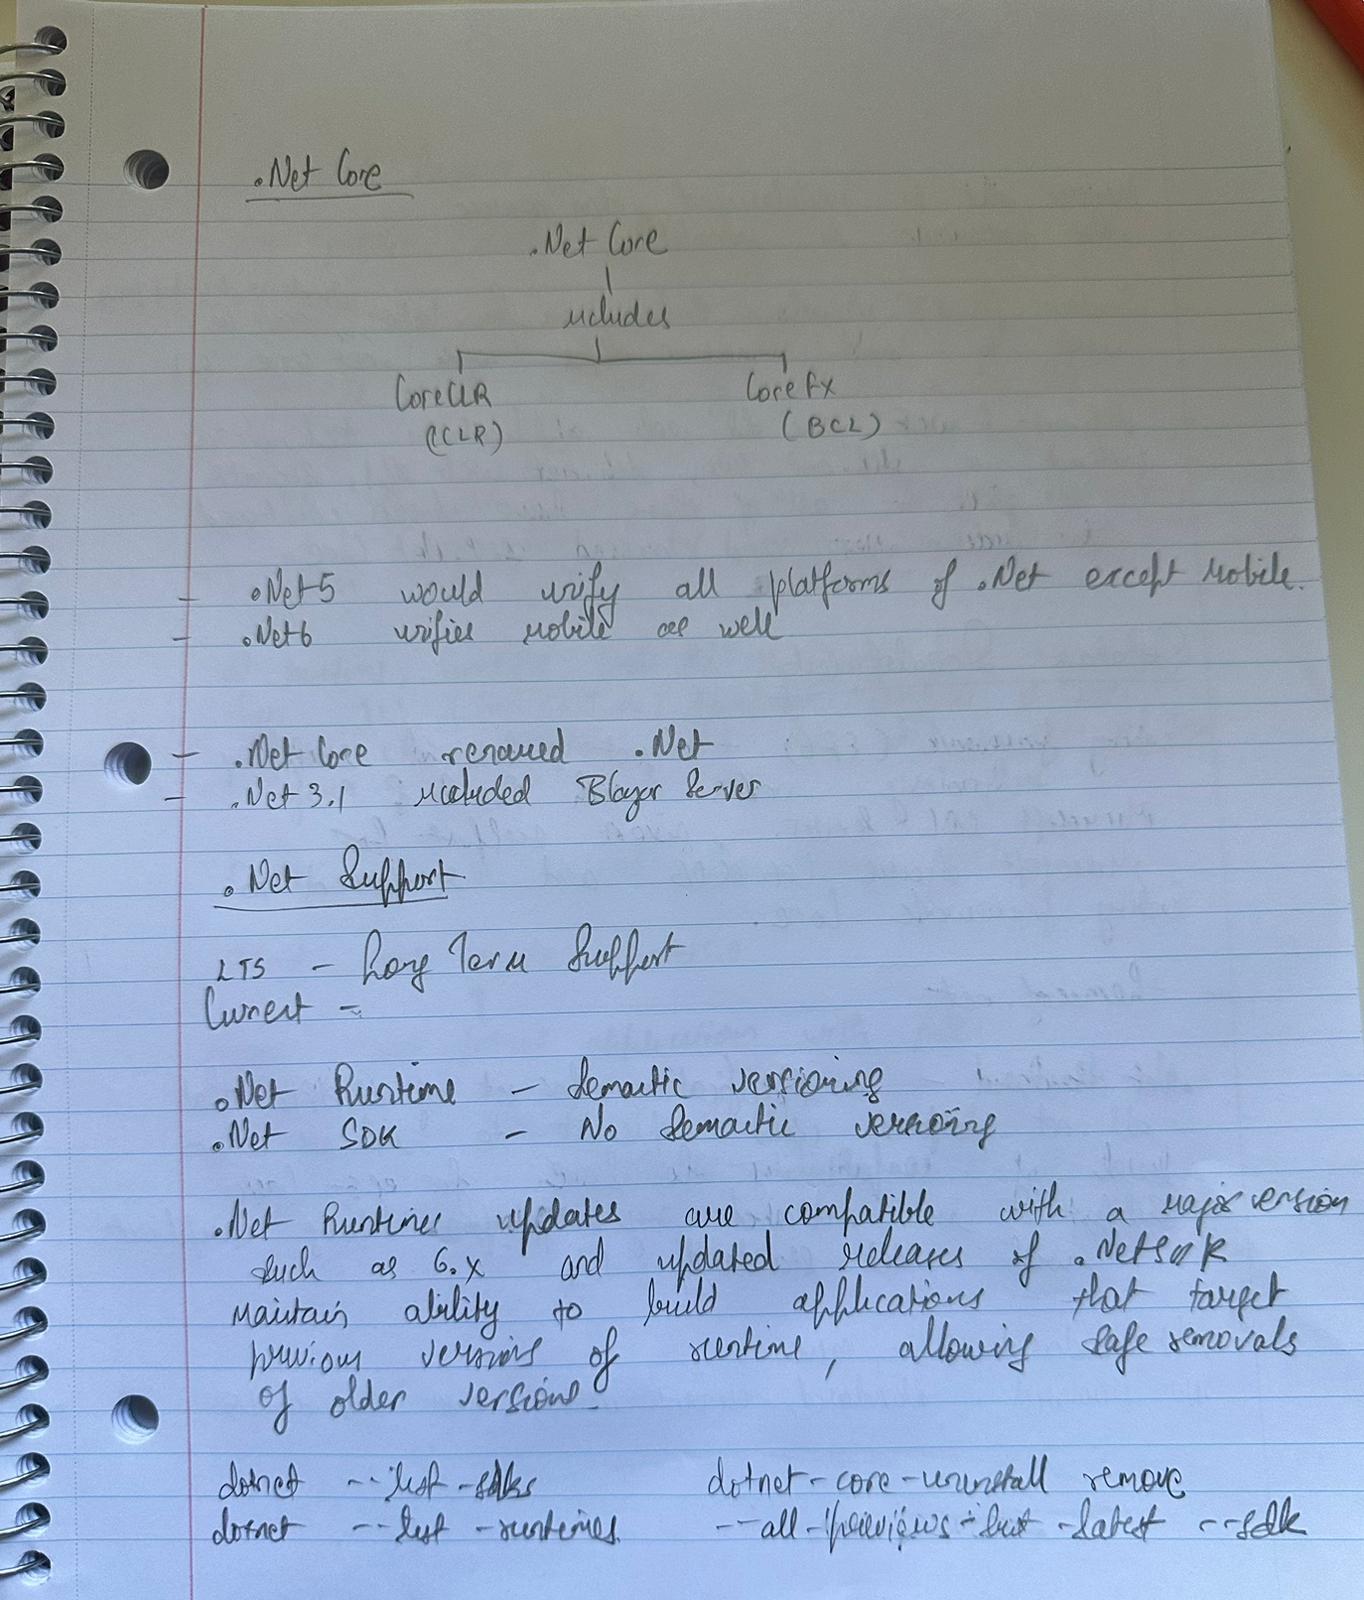 .Net Core
.Net Core
includes
CoreCLR CoreFX
(CLR) (BCL)
- .Net5 would unify all platforms of .Net except Mobile.
- .Net6 unifies mobile as well
- .Net Core renamed .Net
- .Net 3.1 included Blazor Server
.Net Support
LTS - Long Term Support
Current -
.Net Runtime - Semantic versioning
.Net SDK - No Semantic versioning
.Net Runtime updates are compatible with a major version
such as 6.x and updated releases of .Net SDK
maintain ability to build applications that target
previous versions of runtime, allowing safe removals
of older versions.
dotnet --list-sdks dotnet-core-uninstall remove
dotnet --list-runtimes --all-previews-but-latest --sdk